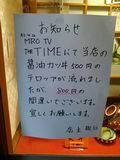 お知らせ
MRO TV
THE TIMEにて当店の
醤油カツ丼500円の
テロップが流れまし
たが、800円の
間違いでございます。
宜しくお願いします。
店主